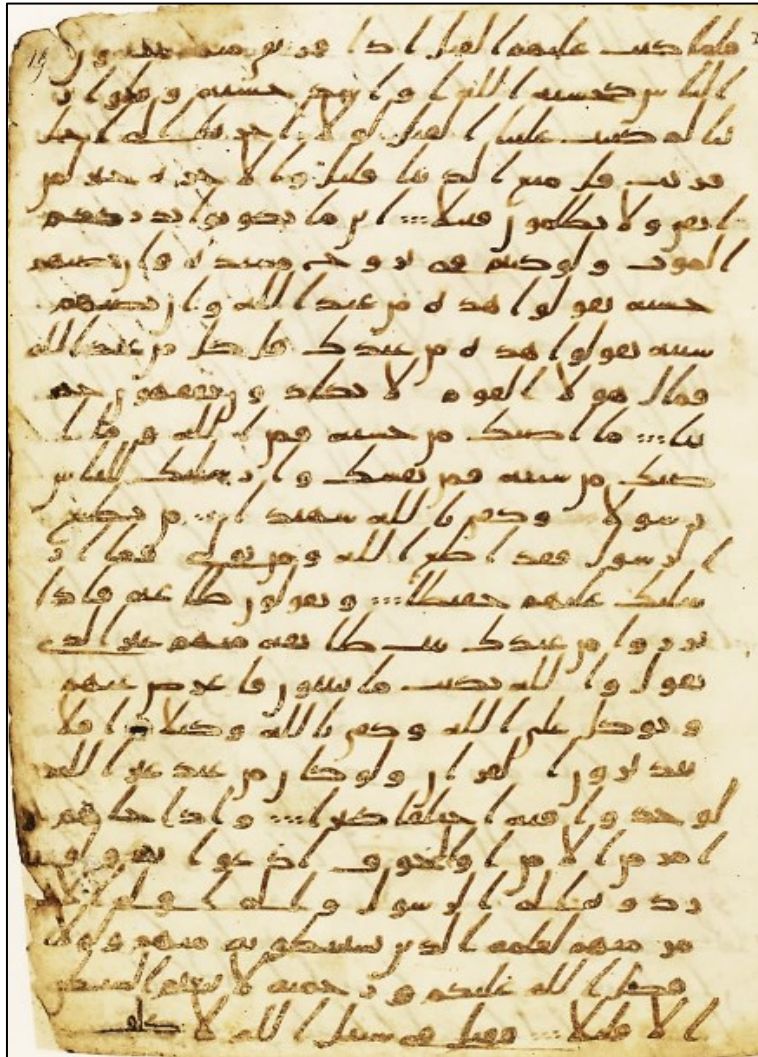 19
فلما كتب عليهم القتل اذا فريق منهم يخشون
الناس كخشية الله او اشد خشية وقلوا ر
بنا لم كتبت علينا القتل لولا اخرتنا الى اجل
قريب قل متع الدنيا قليل والاخرة خير لمن
اتقى ولا تظلمون فتيلا ؞ اين ما تكونوا يدرككم
الموت ولو كنتم في بروج مشيدة وان تصبهم
حسنة يقولوا هذه من عند الله وان تصبهم
سيئة يقولوا هذه من عندك قل كل من عند الله
فمال هولا القوم لا يكادون يفقهون حد
يثا ؞ ما اصبك من حسنة فمن الله وما ا
صبك من سيئة فمن نفسك وارسلنك للناس
رسولا وكفى بالله شهيدا ؞ من يطع
الرسول فقد اطع الله ومن تولى فما ار
سلنك عليهم حفيظا ؞ ويقولون طاعة فاذا
برزوا من عندك بيت طائفة منهم غير الذي
تقول والله يكتب ما يبيتون فاعرض عنهم
وتوكل على الله وكفى بالله وكيلا افلا
يتدبرون القران ولو كان من عند غير الله
لوجدوا فيه اختلفا كثيرا ؞ واذا جاهم
امر من الامن او الخوف اذعوا به ولو
ردوه الى الرسول والى اولى الا
مر منهم لعلمه الذين يستنبطونه منهم ولولا
فضل الله عليكم ورحمته لاتبعتم الشيطن
الا قليلا ؞ فقتل في سبيل الله لا تكلف